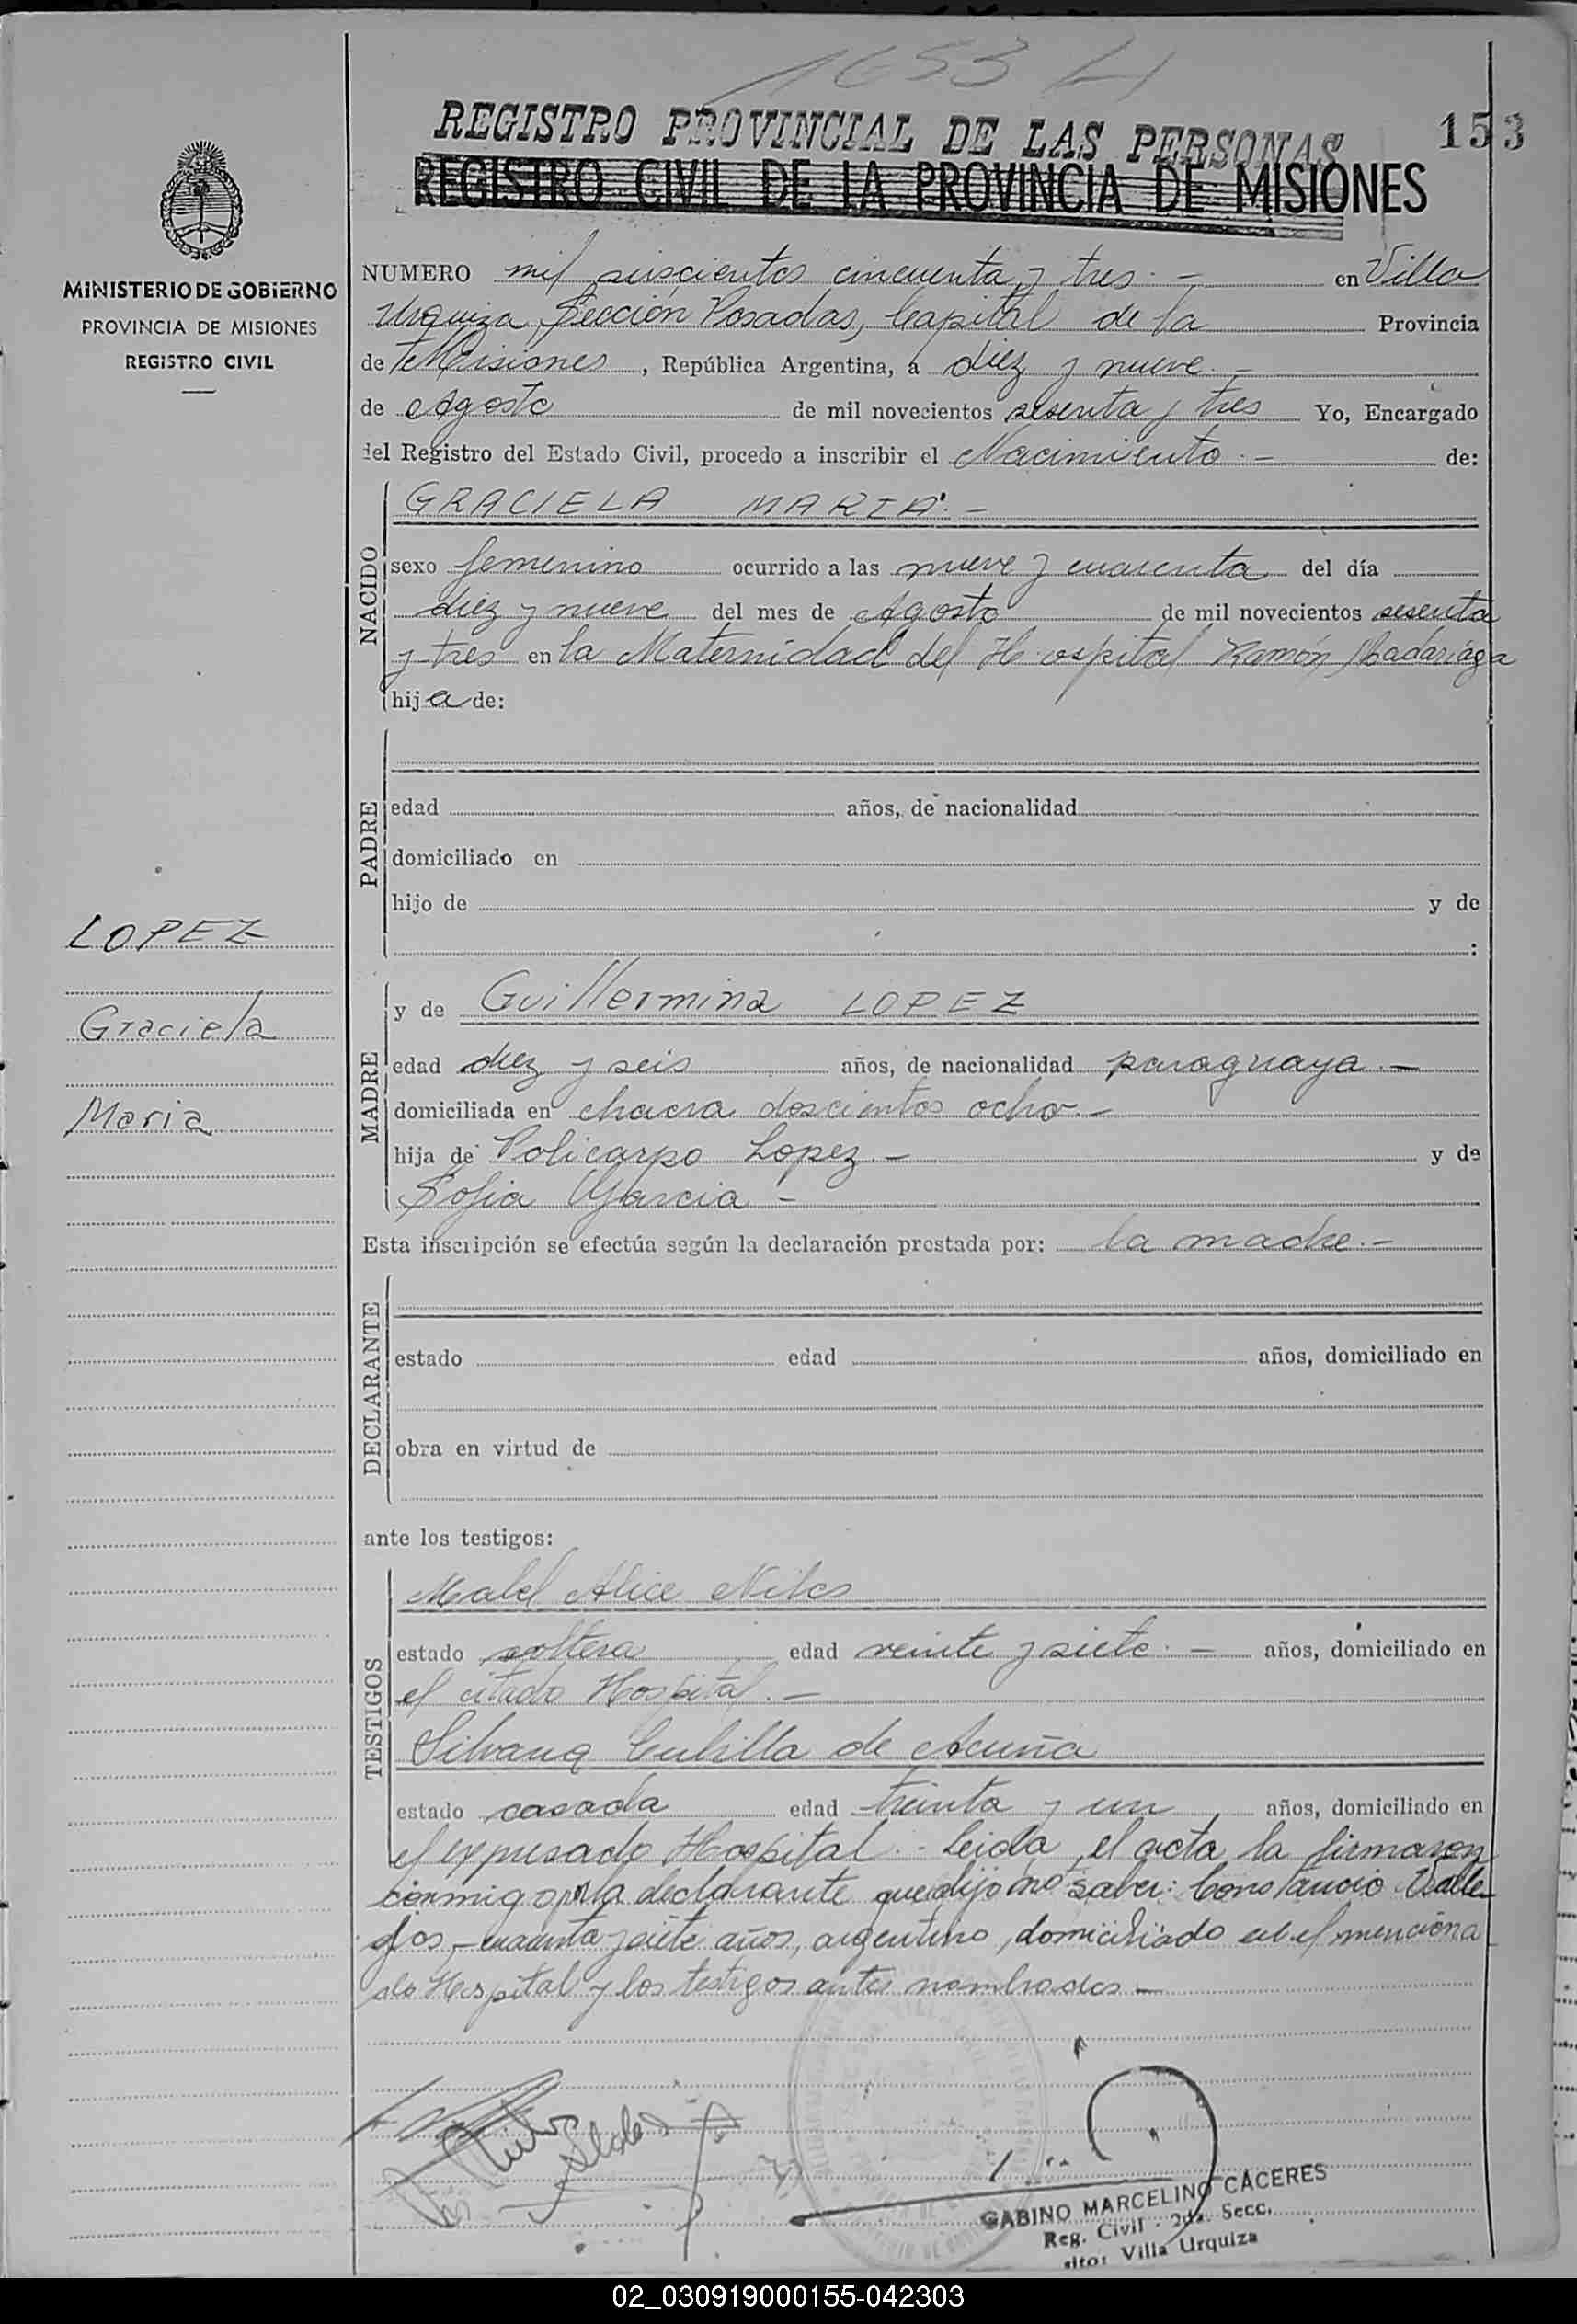 1653 L
REGISTRO PROVINCIAL DE LAS PERSONAS
153
REGISTRO CIVIL DE LA PROVINCIA DE MISIONES
MINISTERIO DE GOBIERNO
PROVINCIA DE MISIONES
REGISTRO CIVIL
LOPEZ
Graciela
Maria
NUMERO mil seiscientos cincuenta y tres.- en Villa
Urquiza, Sección Posadas, Capital de la Provincia
de Misiones, República Argentina, a diez y nueve.-
de Agosto de mil novecientos sesenta y tres Yo, Encargado
del Registro del Estado Civil, procedo a inscribir el Nacimiento.- de:
NACIDO
GRACIELA MARIA.-
sexo femenino ocurrido a las nueve y cuarenta del día
diez y nueve del mes de Agosto de mil novecientos sesenta
y tres en la Maternidad del Hospital Ramón Madariaga
hija de:
PADRE
edad años, de nacionalidad
domiciliado en
hijo de y de
:
MADRE
y de Guillermina LOPEZ
edad diez y seis años, de nacionalidad paraguaya.-
domiciliada en chacra doscientos ocho.-
hija de Policarpo Lopez.- y de
Sofia Garcia-
Esta inscripción se efectúa según la declaración prestada por: la madre.-
DECLARANTE
estado edad años, domiciliado en
obra en virtud de
ante los testigos:
TESTIGOS
Mabel Alice
estado soltera edad veinte y siete.- años, domiciliado en
el citado Hospital.-
Silvana Cubilla de Acuña
estado casada edad treinta y un años, domiciliado en
el expresado Hospital.- Leida el acta la firmaron
conmigo por la declarante que dijo no saber: Constancio Valle
jos,- cuarenta y siete años, argentino, domiciliado en el menciona
do Hospital y los testigos antes nombrados-
GABINO MARCELINO CACERES
Reg. Civil - 2da. Secc.
sito: Villa Urquiza
02_030919000155-042303